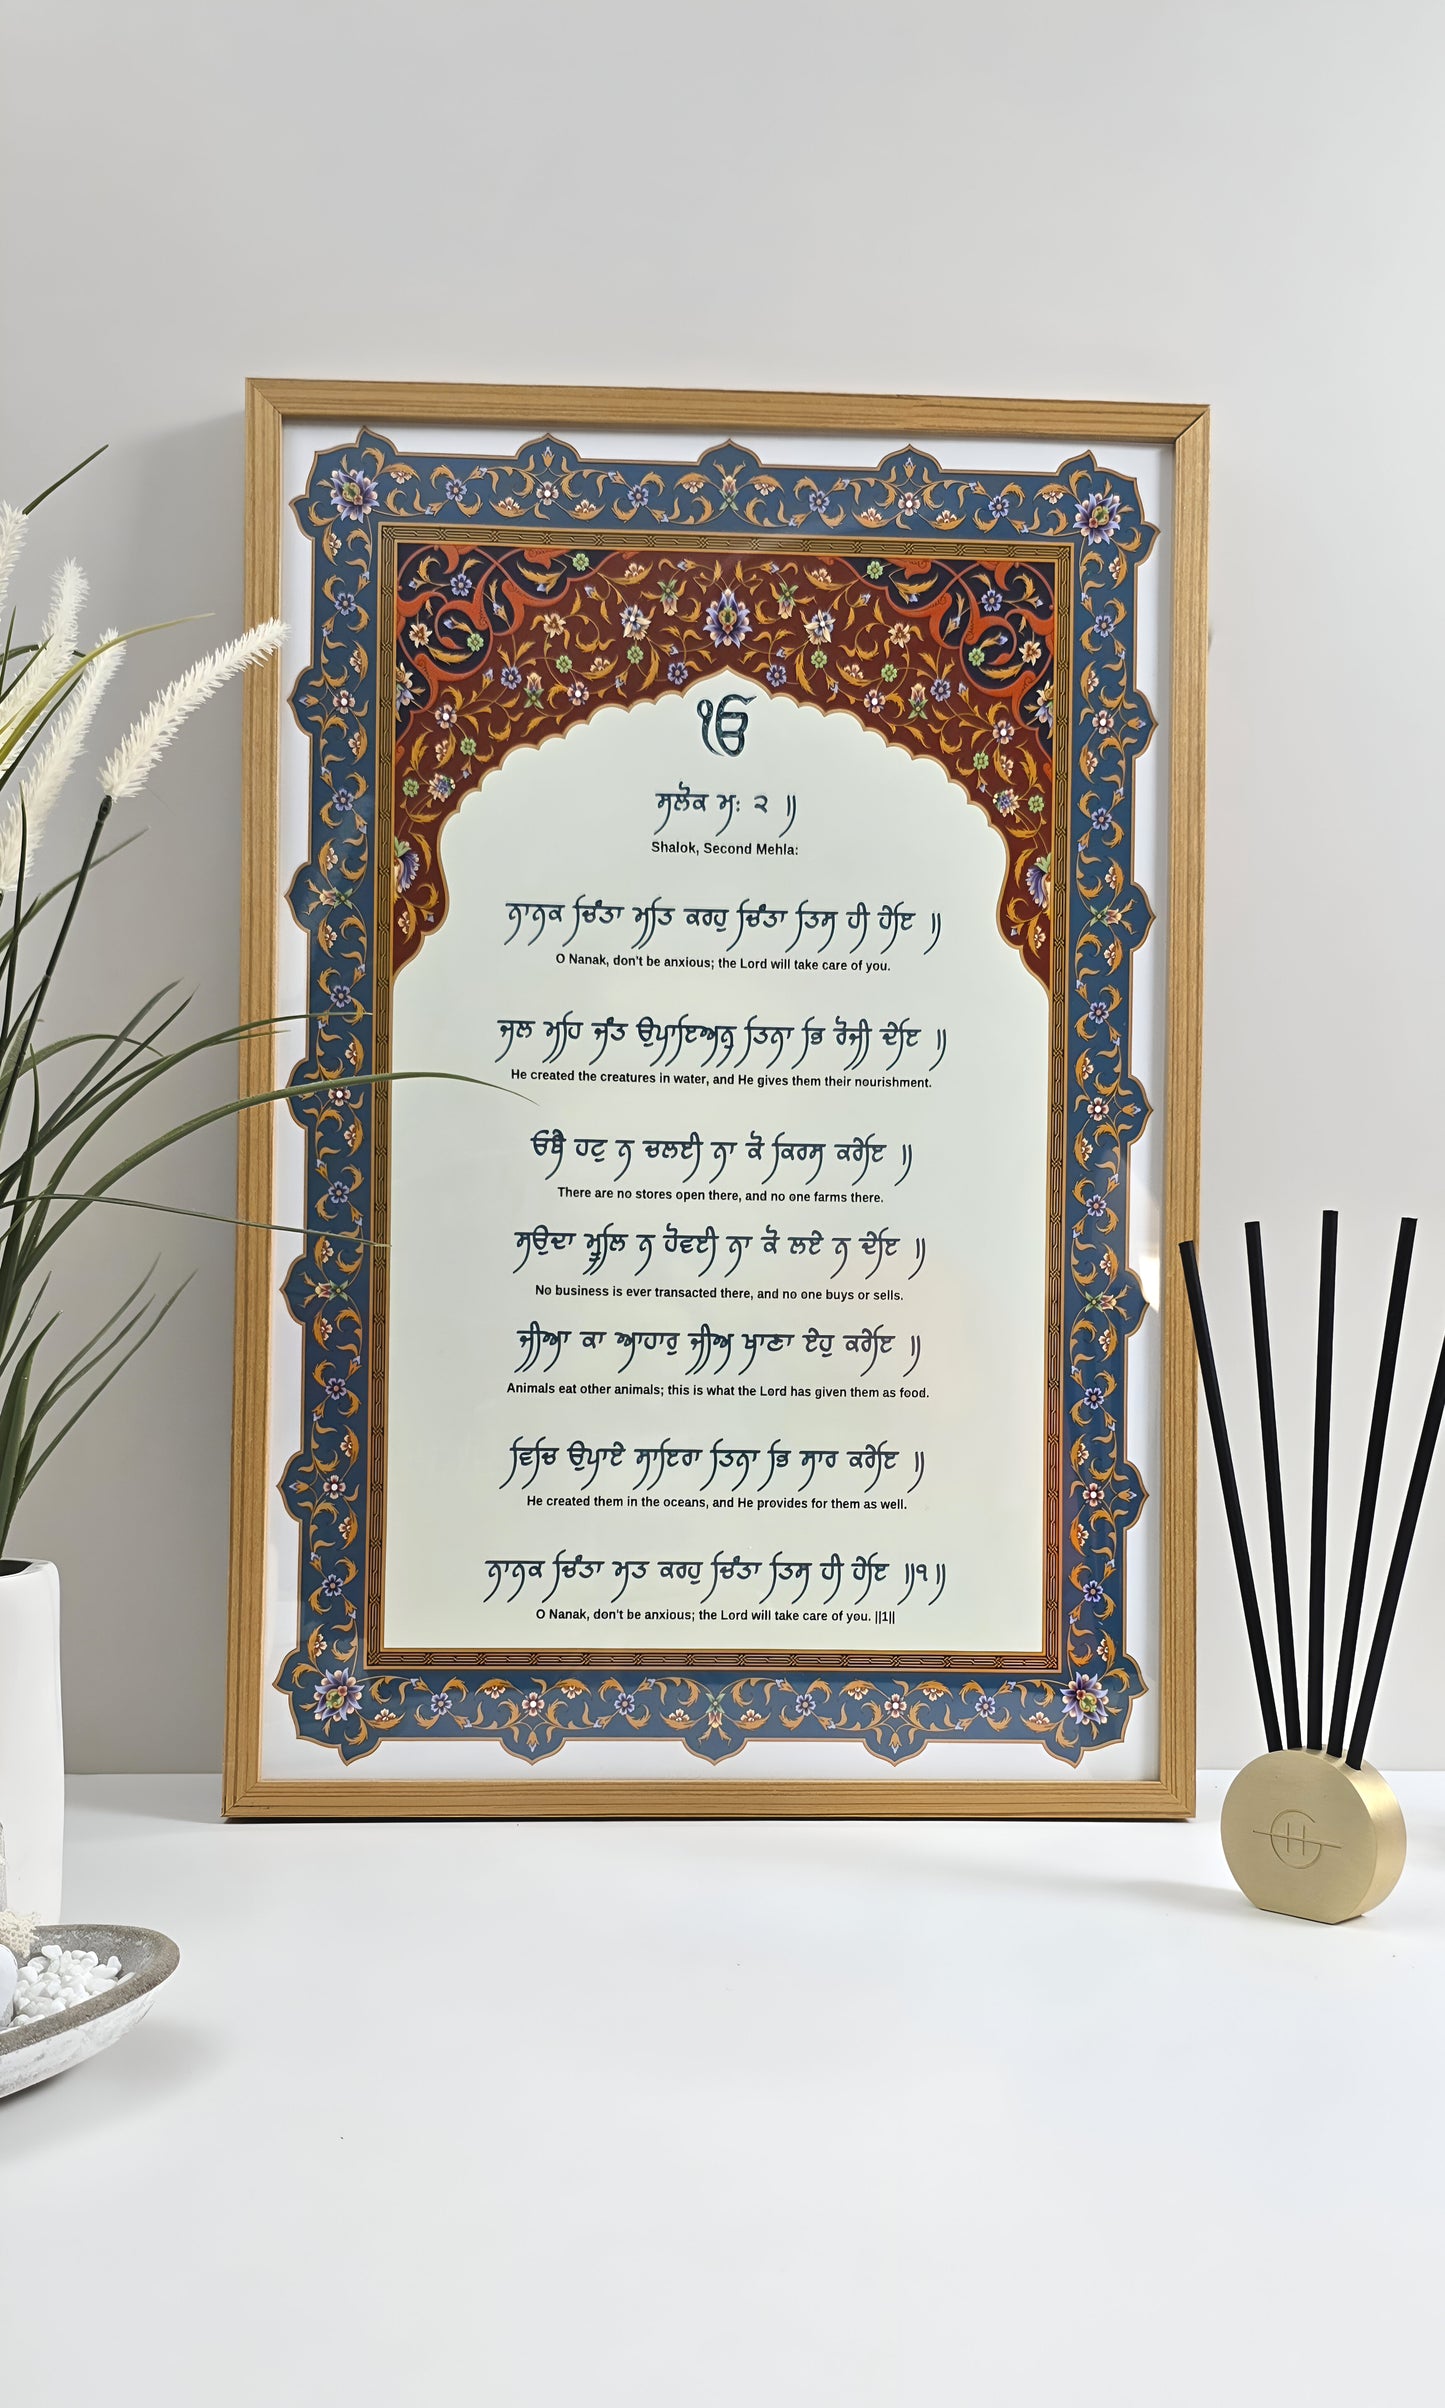 ੴ
ਸਲੋਕ ਮਃ ੨ ॥
Shalok, Second Mehla:
ਨਾਨਕ ਚਿੰਤਾ ਮਤਿ ਕਰਹੁ ਚਿੰਤਾ ਤਿਸ ਹੀ ਹੇਇ ॥
O Nanak, don't be anxious; the Lord will take care of you.
ਜਲ ਮਹਿ ਜੰਤ ਉਪਾਇਅਨੁ ਤਿਨਾ ਭਿ ਰੋਜੀ ਦੇਇ ॥
He created the creatures in water, and He gives them their nourishment.
ਓਥੈ ਹਟੁ ਨ ਚਲਈ ਨਾ ਕੋ ਕਿਰਸ ਕਰੇਇ ॥
There are no stores open there, and no one farms there.
ਸਉਦਾ ਮੂਲਿ ਨ ਹੋਵਈ ਨਾ ਕੋ ਲਏ ਨ ਦੇਇ ॥
No business is ever transacted there, and no one buys or sells.
ਜੀਆ ਕਾ ਆਹਾਰੁ ਜੀਅ ਖਾਣਾ ਏਹੁ ਕਰੇਇ ॥
Animals eat other animals; this is what the Lord has given them as food.
ਵਿਚਿ ਉਪਾਏ ਸਾਇਰਾ ਤਿਨਾ ਭਿ ਸਾਰ ਕਰੇਇ ॥
He created them in the oceans, and He provides for them as well.
ਨਾਨਕ ਚਿੰਤਾ ਮਤ ਕਰਹੁ ਚਿੰਤਾ ਤਿਸ ਹੀ ਹੇਇ ॥੧॥
O Nanak, don't be anxious; the Lord will take care of you. ||1||